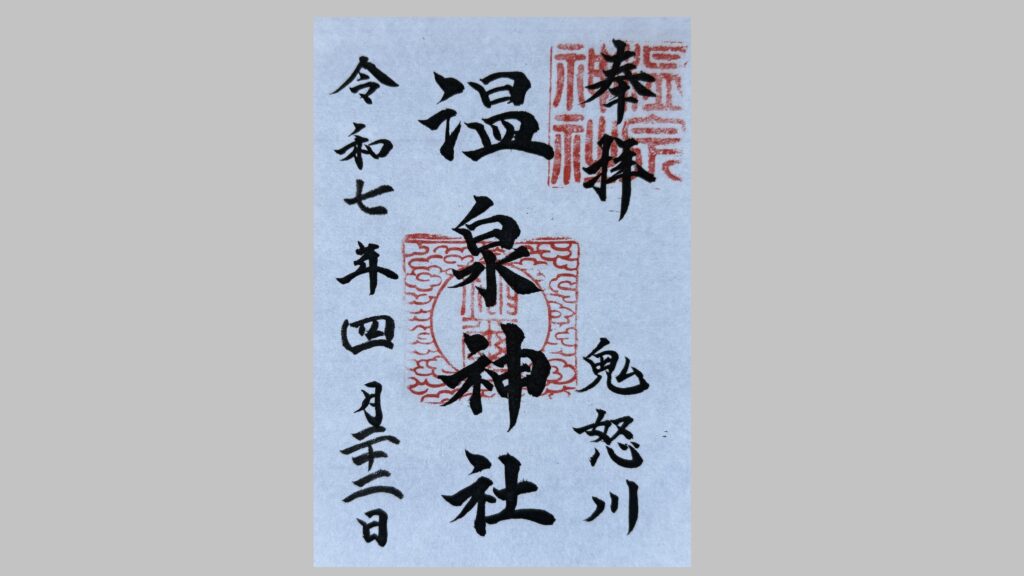 奉拝
鬼怒川
温泉神社
令和七年四月二十二日